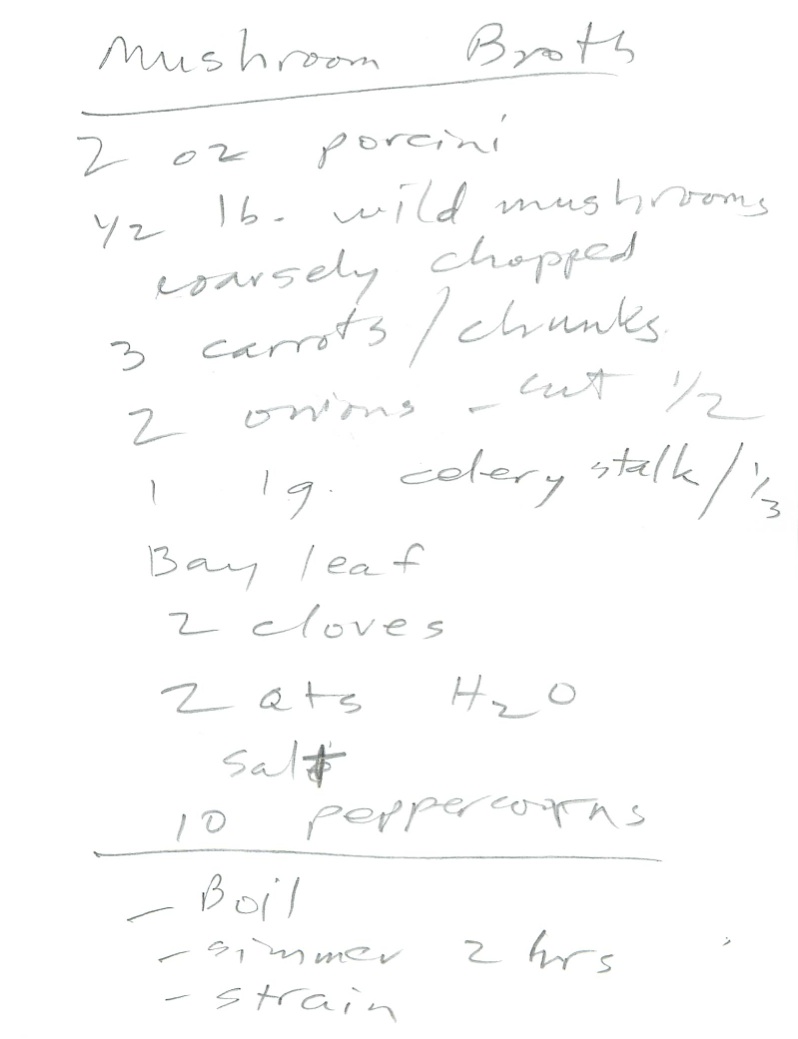 Mushroom Broth
2 oz porcini
1/2 lb. wild mushrooms
coarsely chopped
3 carrots / chunks
2 onions - cut 1/2
1 lg. celery stalk / 1/3
Bay leaf
2 cloves
2 qts H2O
salt
10 peppercorns
- Boil
- simmer 2 hrs
- strain